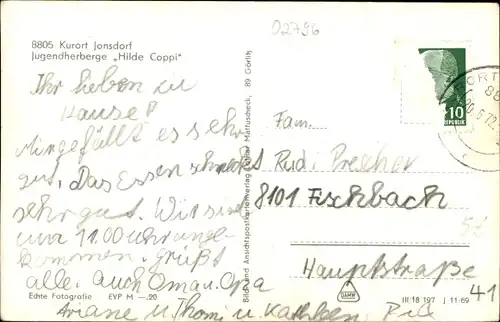 02796
8805 Kurort Jonsdorf
Jugendherberge „Hilde Coppi"
Ihr lieben zu
Hause!
Mir gefällt es sehr
gut. Das Essen schmeckt
sehr gut. Wir sind
um 11.00 Uhr ange-
kommen. grüßt
alle. auch Oma u. Opa
Ariane u. Thomi u. Kathleen
Echte Fotografie EYP M —.20
Bild und Ansichtskartenverlag Mattuscheck, 89 Görlitz
ORT
88
20.6.72
10
REPUBLIK
Fam.
Rud. Prescher
8101 Fischbach
Hauptstraße
41
DAMW
III 18 197 J 11 69